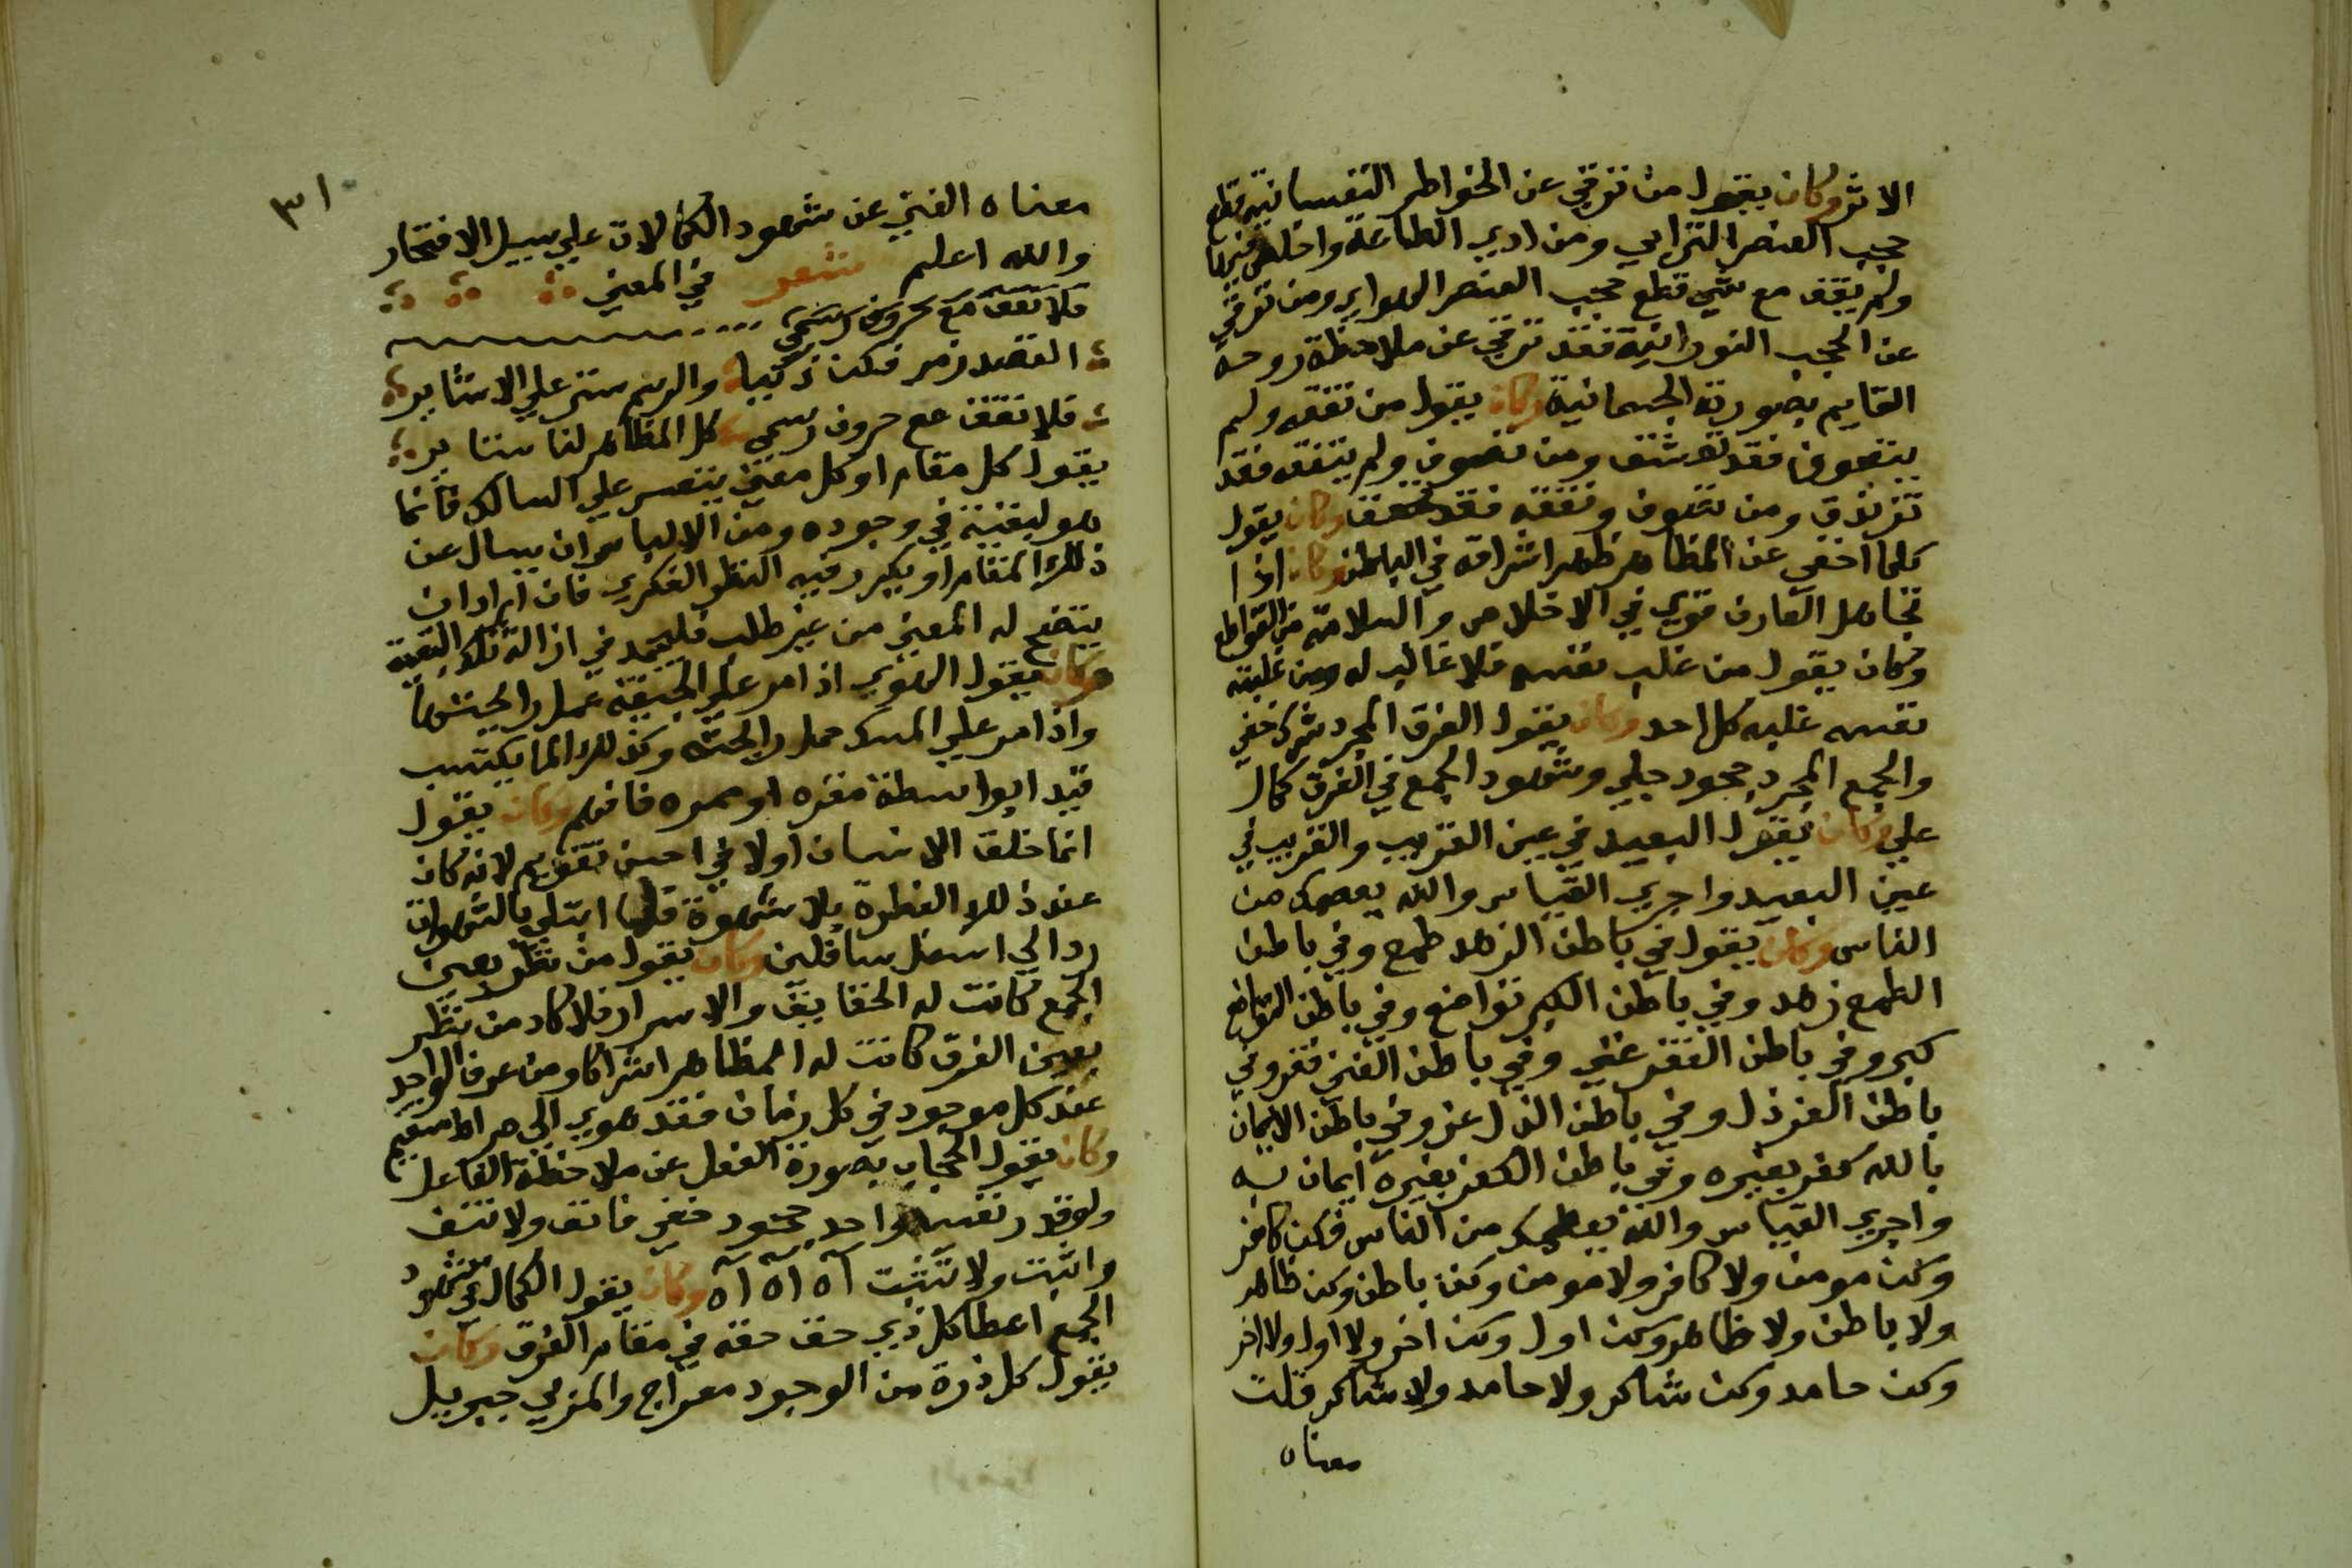 الاثر وكان يقول من ترقي عن الخواطر النفسانية قطع
حجب العنصر الترابي ومن ادي الطاعة واخلص فيها
ولم يقف مع شي قطع حجب العنصر الهوايي ومن ترقي
عن الحجب النورانية فقد ترقي عن ملاحظة روحه
القايم بصورته الجسمانية وكان يقول من تفقه ولم
يتصوف فقد تقشف ومن تصوف ولم يتفقه فقد
تزندق ومن تصوف وتفقه فقد تحقق وكان يقول
كلما اخفي عن المظاهر ظهر اشراقه في الباطن وكان اذا
تجاهل العارف قوي في الاخلاص والسلامة من القواطع
وكان يقول من غلب نفسه فلا غالب له ومن غلبته
نفسه غلبه كل احد وكان يقول الفرق المجرد شرك خفي
والجمع المجرد جحود جلي وشهود الجمع في الفرق كمال
علي وكان يقول البعيد في عين القريب والقريب في
عين البعيد واجري القياس والله يعصمك من
الناس وكان يقول في باطن الزهد طمع وفي باطن
الطمع زهد وفي باطن الكبر تواضع وفي باطن التواضع
كبر وفي باطن الفقر غني وفي باطن الغني فقر وفي
باطن العز ذل وفي باطن الذل عز وفي باطن الايمان
بالله كفر بغيره وفي باطن الكفر بغيره ايمان به
واجري القياس والله يعصمك من الناس فكن كافر
وكن مومن ولا كافر ولا مومن وكن باطن وكن ظاهر
ولا باطن ولا ظاهر وكن اول وكن اخر ولا اول ولا اخر
وكن حامد وكن شاكر ولا حامد ولا شاكر قلت
معناه
٣١
معناه الغني عن شهود الكمالات علي سبيل الافتخار
والله اعلم شعر في المعني
فلا تقف مع حروف رسمي
القصد رمز فكن ذكيا والرسم ستر علي الاشاير
فلا تقف مع حروف رسمي كل المظاهر لنا ستاير
يقول كل مقام او كل معني يتعسر علي السالك فانما
هو لبقية في وجوده ومن الالباس ان يسال عن
ذلك المقام او يكرر فيه النظر الفكري فان اراد ان
يتضح له المعني من غير طلب فليجهد في ازالة تلك البقية
وكان يقول الهوي اذا مر علي الجيفة عمل رايحتها
واذا مر علي المسك حمل رايحته وكذلك الما يكتسب
قيدا بواسطة مقره او ممره فافهم وكان يقول
انما خلق الانسان اولا في احسن تقويم لانه كان
عند ذلك الفطرة بلا شهوة فلما ابتلي بالشهوات
رد الي اسفل سافلين وكان يقول من نظر بعين
الجمع كانت له الحقايق والاسرار فلا كاد من نظر
بعين الفرق كانت له المظاهر اشراكا ومن عرف الواحد
عند كل موجود في كل زمان فقد هدي الي صراط مستقيم
وكان يقول الحجاب بصورة الفعل عن ملاحظة الفاعل
ولو قدر نفس واحد جحود خفي فانف ولا تنف
واثبت ولا تثبت آه آه آه وكان يقول الكمال في شهود
الجمع اعطا كل ذي حق حقه في مقام الفرق وكان
يقول كل ذرة من الوجود معراج والمربي جبريل